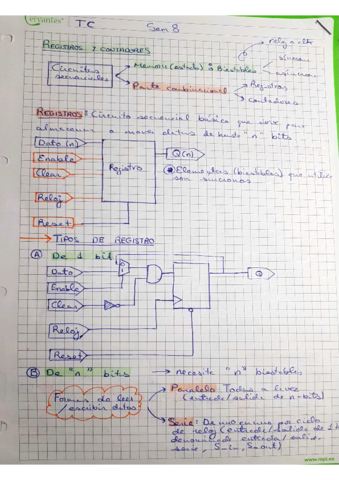 cervantes
TC
Sem 8
1
REGISTROS Y CONTADORES
Circuitos
secuenciales
Memoria (estado) o Biestables
Parte combinacional
Registros
contadores
REGISTROS: Circuito secuencial básico que sirve para
almacenar o mover datos de hasta "n" bits
Dato (n)
Enable
Clear
Reloj
Reset
Registro
Q(n)
Elementos (biestables) que utilice
son síncronos
TIPOS DE REGISTRO
A De 1 bit
Dato
Enable
Clear
Reloj
Reset
Q
B De "n" bits
necesita "n" biestables
Formas de leer
/escribir datos
Paralelo Todos a la vez
(entrada/salida de n-bits)
Serie: De uno en uno por ciclo
de reloj (entrada/salida de 1 b
entrada/salida
serie, Sin, Sout)